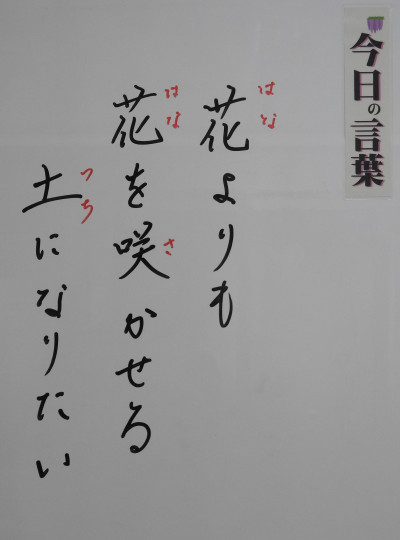 今日の言葉
花よりも
はな
花を咲かせる
はな
さ
土になりたい
つち